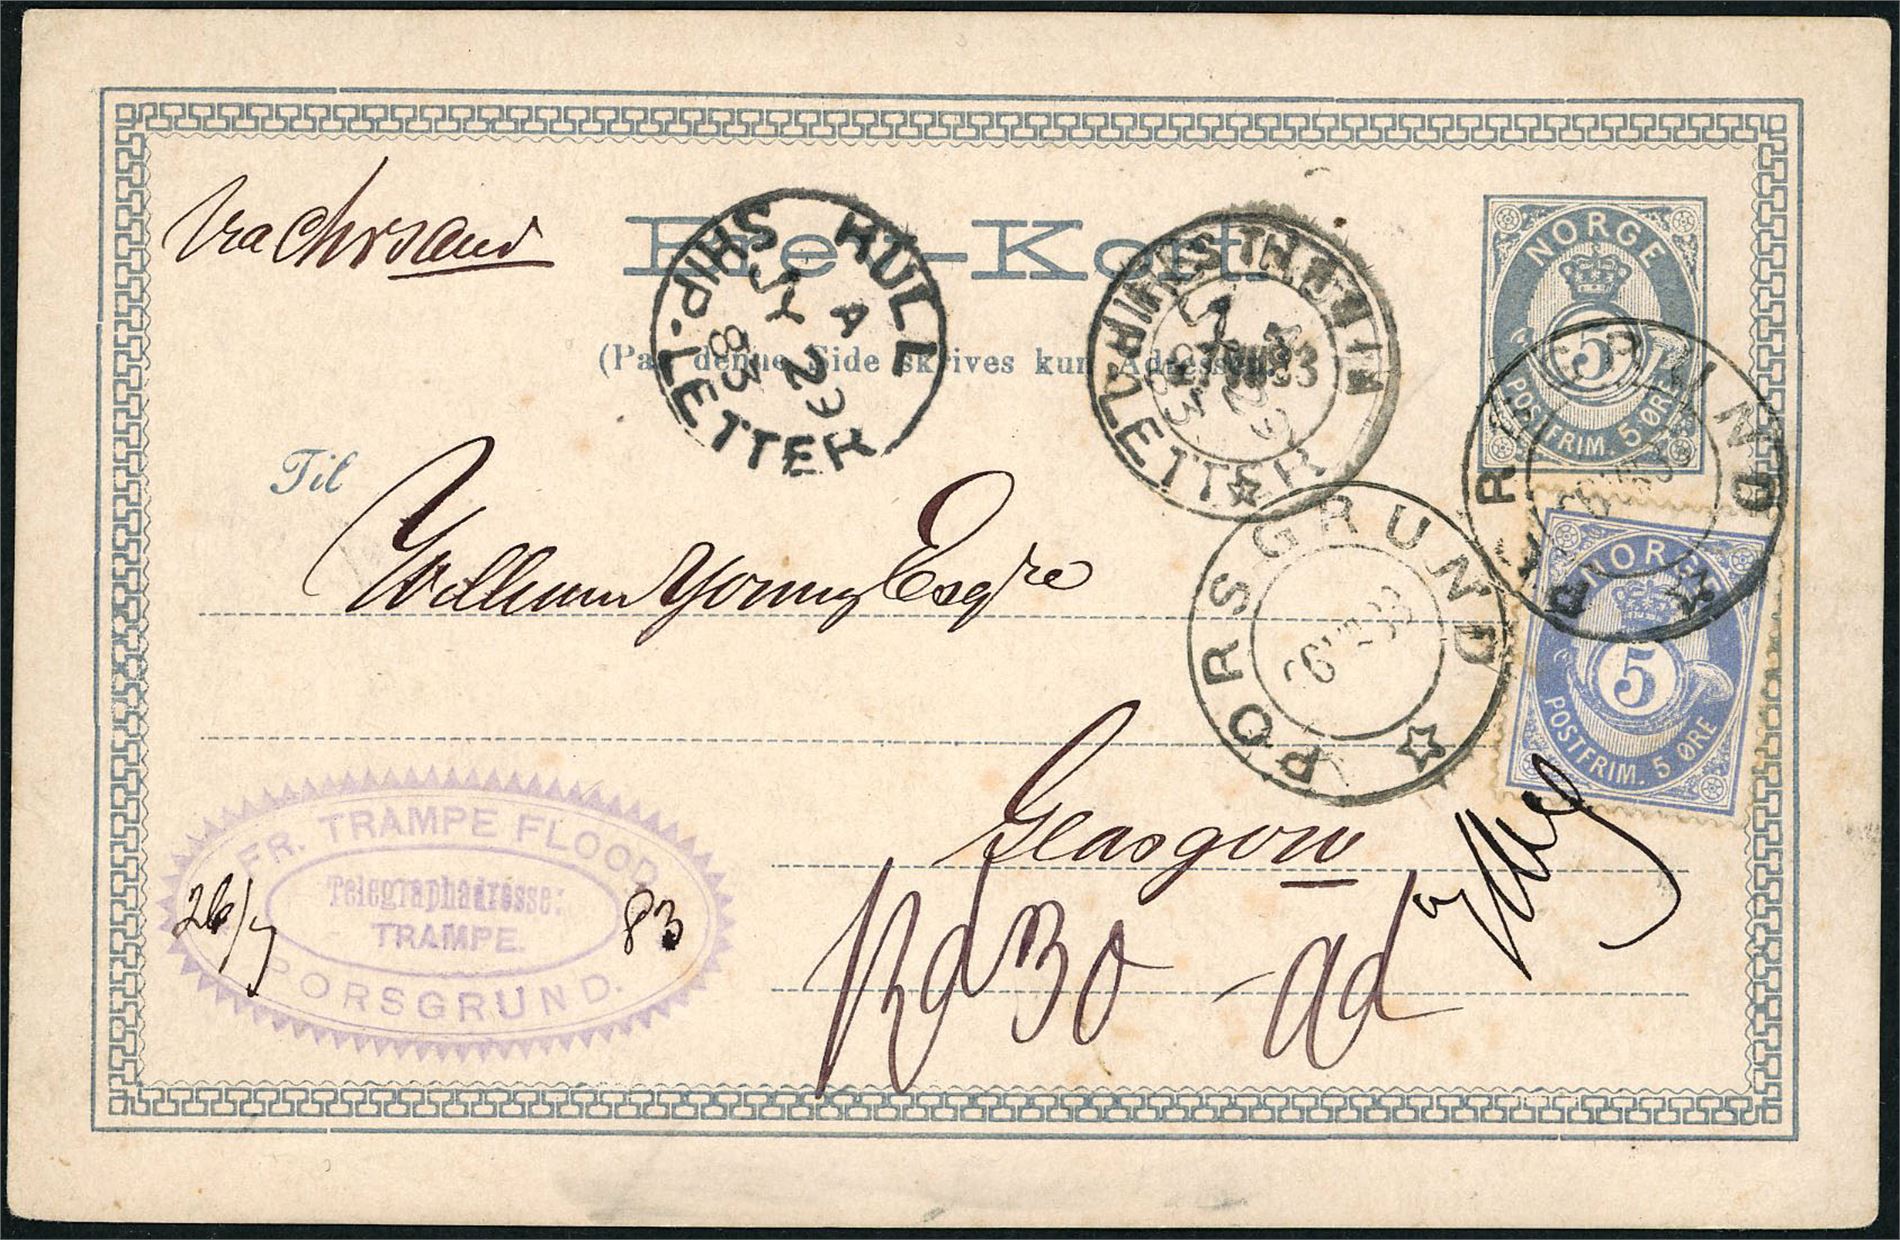 Via Chrsand
Bref-Kort
(Paa denne Side skrives kun Adressen.)
HULL
SHIP-LETTER
A
JY 29
83
SHIP-LETTER
JY 29
83
NORGE
5
POSTFRIM. 5 ØRE
PORSGRUND
PORSGRUND
NORGE
5
POSTFRIM. 5 ØRE
Til
William Young Esqre
Glasgow
FR. TRAMPE FLOOD
Telegraphadresse:
TRAMPE.
PORSGRUND.
26/7 83